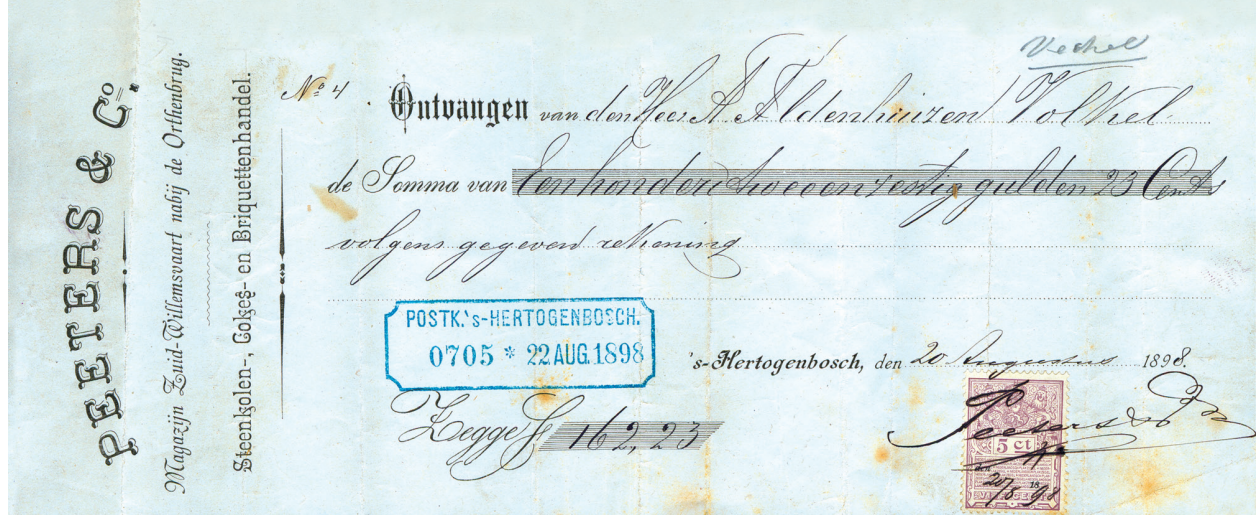 PEETERS & Co.
Magazijn Zuid-Willemsvaart nabij de Orthenbrug.
Steenkolen-, Cokes- en Briquettenhandel.
Vechel
No 4
Ontvangen van den Heer A. F. Aldenhuizen Volkel
de Somma van Een honderd tweeenzestig gulden 23 Cents
volgens gegeven rekening
POSTK. 's-HERTOGENBOSCH.
0705 * 22 AUG. 1898
's-Hertogenbosch, den 20 Augustus 1898.
Zegge f 162,23
Peeters & Co
5 ct
20/8 1898